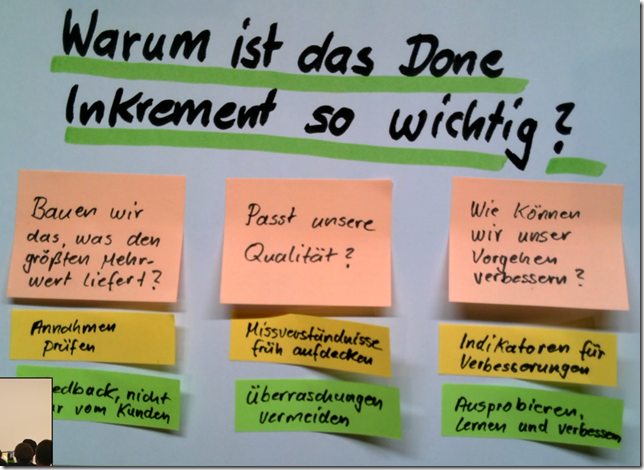 Warum ist das Done
Inkrement so wichtig?
Bauen wir
das, was den
größten Mehr-
wert liefert?
Annahmen
prüfen
Feedback, nicht
vom Kunden
Passt unsere
Qualität?
Missverständnisse
früh aufdecken
Überraschungen
vermeiden
Wie können
wir unser
Vorgehen
verbessern?
Indikatoren für
Verbesserungen
Ausprobieren,
lernen und verbessern